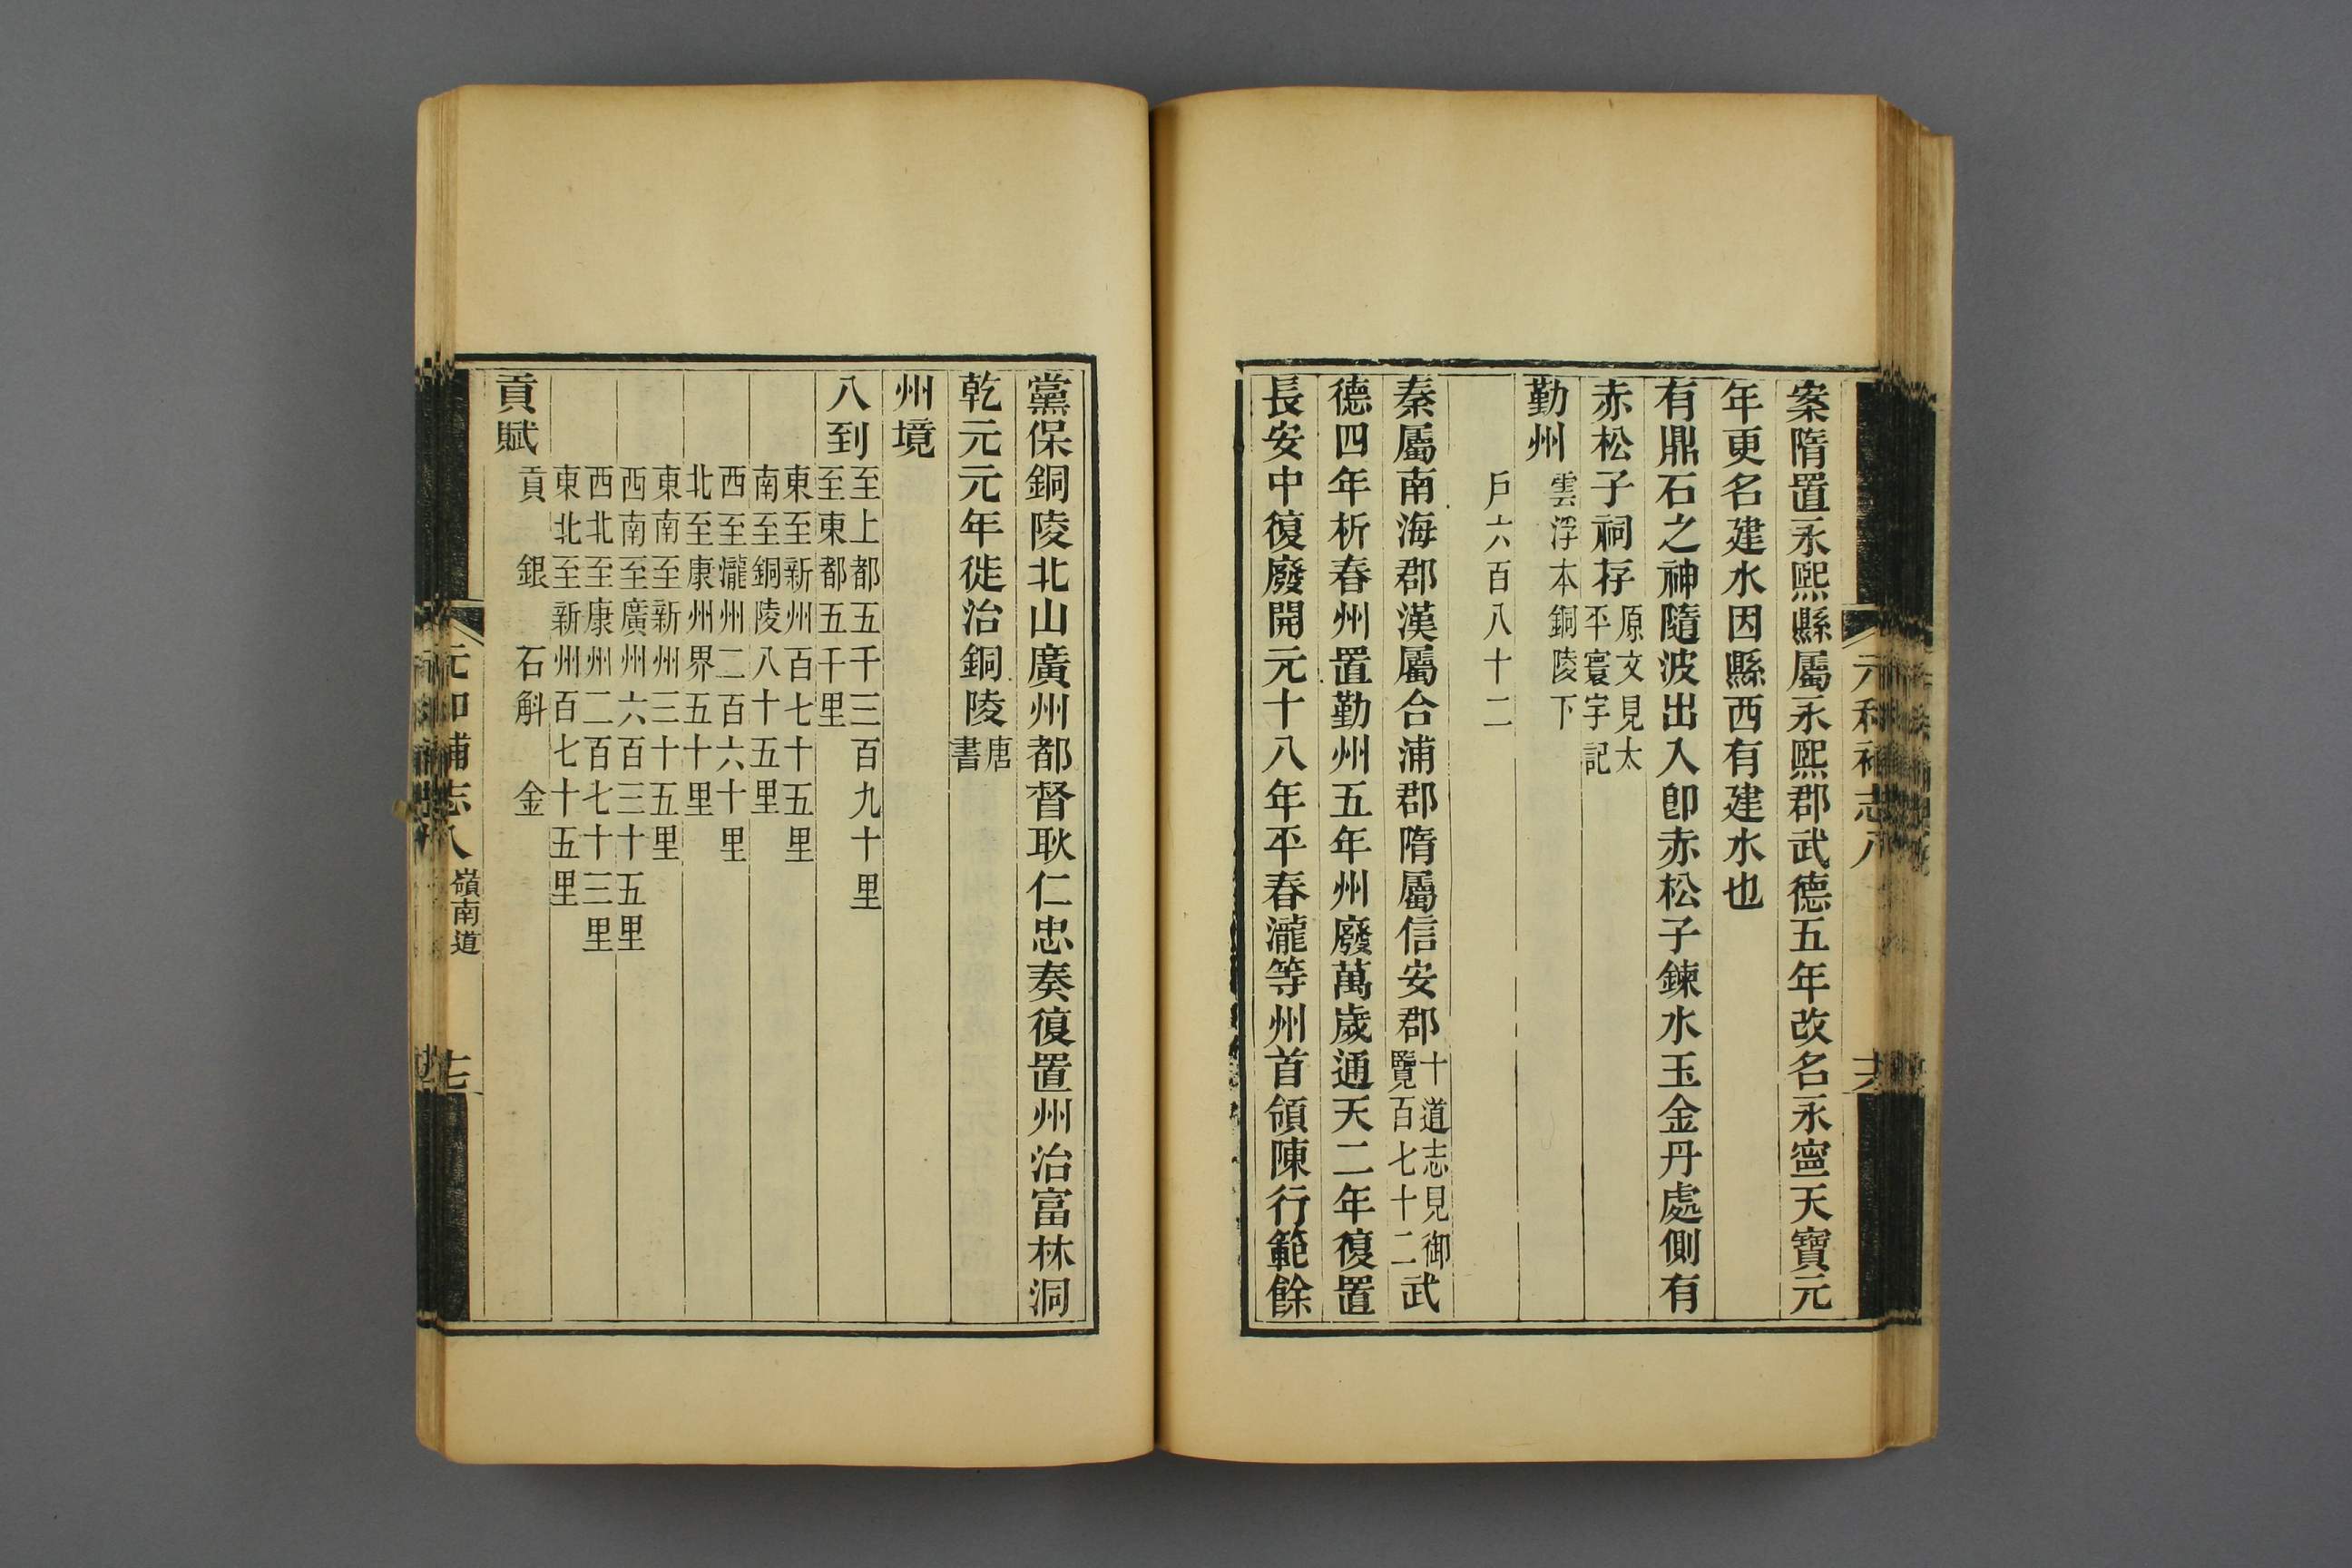 案隋置永熙縣屬永熙郡武德五年改名永寧天寶元
年更名建水因縣西有建水也
有鼎石之神隨波出入卽赤松子鍊水玉金丹處側有
赤松子祠存原文見太
平寰宇記
勤州雲浮本銅陵下
戶六百八十二
秦屬南海郡漢屬合浦郡隋屬信安郡十道志見御
覽百七十二武
德四年析春州置勤州五年州廢萬歲通天二年復置
長安中復廢開元十八年平春瀧等州首領陳行範餘
黨保銅陵北山廣州都督耿仁忠奏復置州治富林洞
乾元元年徙治銅陵唐
書
州境
八到至上都五千三百九十里
至東都五千里
東至新州百七十五里
南至銅陵八十五里
西至瀧州二百六十里
北至康州界五十里
東南至新州三十五里
西南至廣州六百三十五里
西北至康州二百七十三里
東北至新州百七十五里
貢賦
貢 銀 石斛 金
元和補志八 嶺南道 七